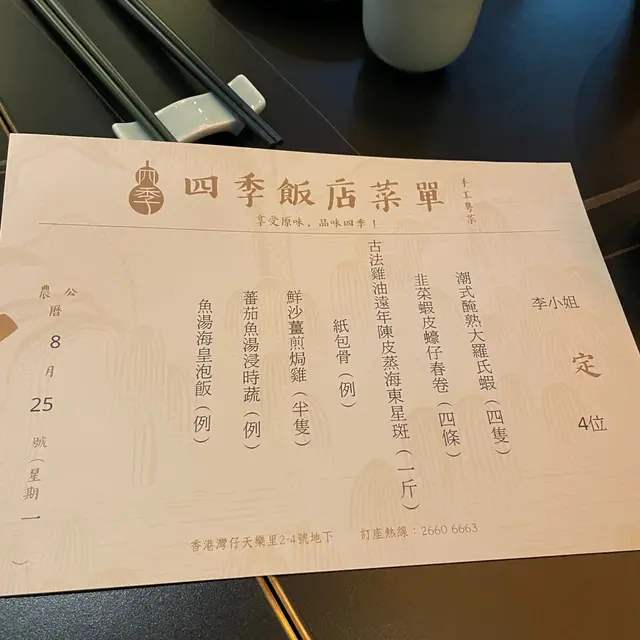 四季
四季飯店菜單
手工粵菜
享受原味，品味四季！
李小姐
定
4位
潮式醃熟大羅氏蝦（四隻）
韭菜蝦皮蠔仔春卷（四條）
古法雞油遠年陳皮蒸海東星斑（一斤）
紙包骨（例）
鮮沙薑煎焗雞（半隻）
蕃茄魚湯浸時蔬（例）
魚湯海皇泡飯（例）
公
農
曆
8
月
25
號（星期一）
香港灣仔天樂里2-4號地下
訂座熱線：2660 6663